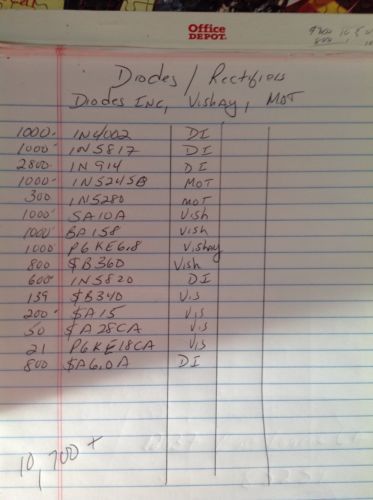 Office
DEPOT.
Diodes / Rectifiers
Diodes Inc, Vishay, MOT
1000 1N4002 DI
1000 1N5817 DI
2800 1N914 DI
1000 1N5245B MOT
300 1N5280 MOT
1000 SA10A Vish
1000 BA158 Vish
1000 P6KE6.8 Vishay
800 $B360 Vish
600 1N5820 DI
139 $B340 Vis
200 $A15 Vis
50 $A28CA Vis
21 P6KE18CA Vis
800 $A6.0A DI
10,700+